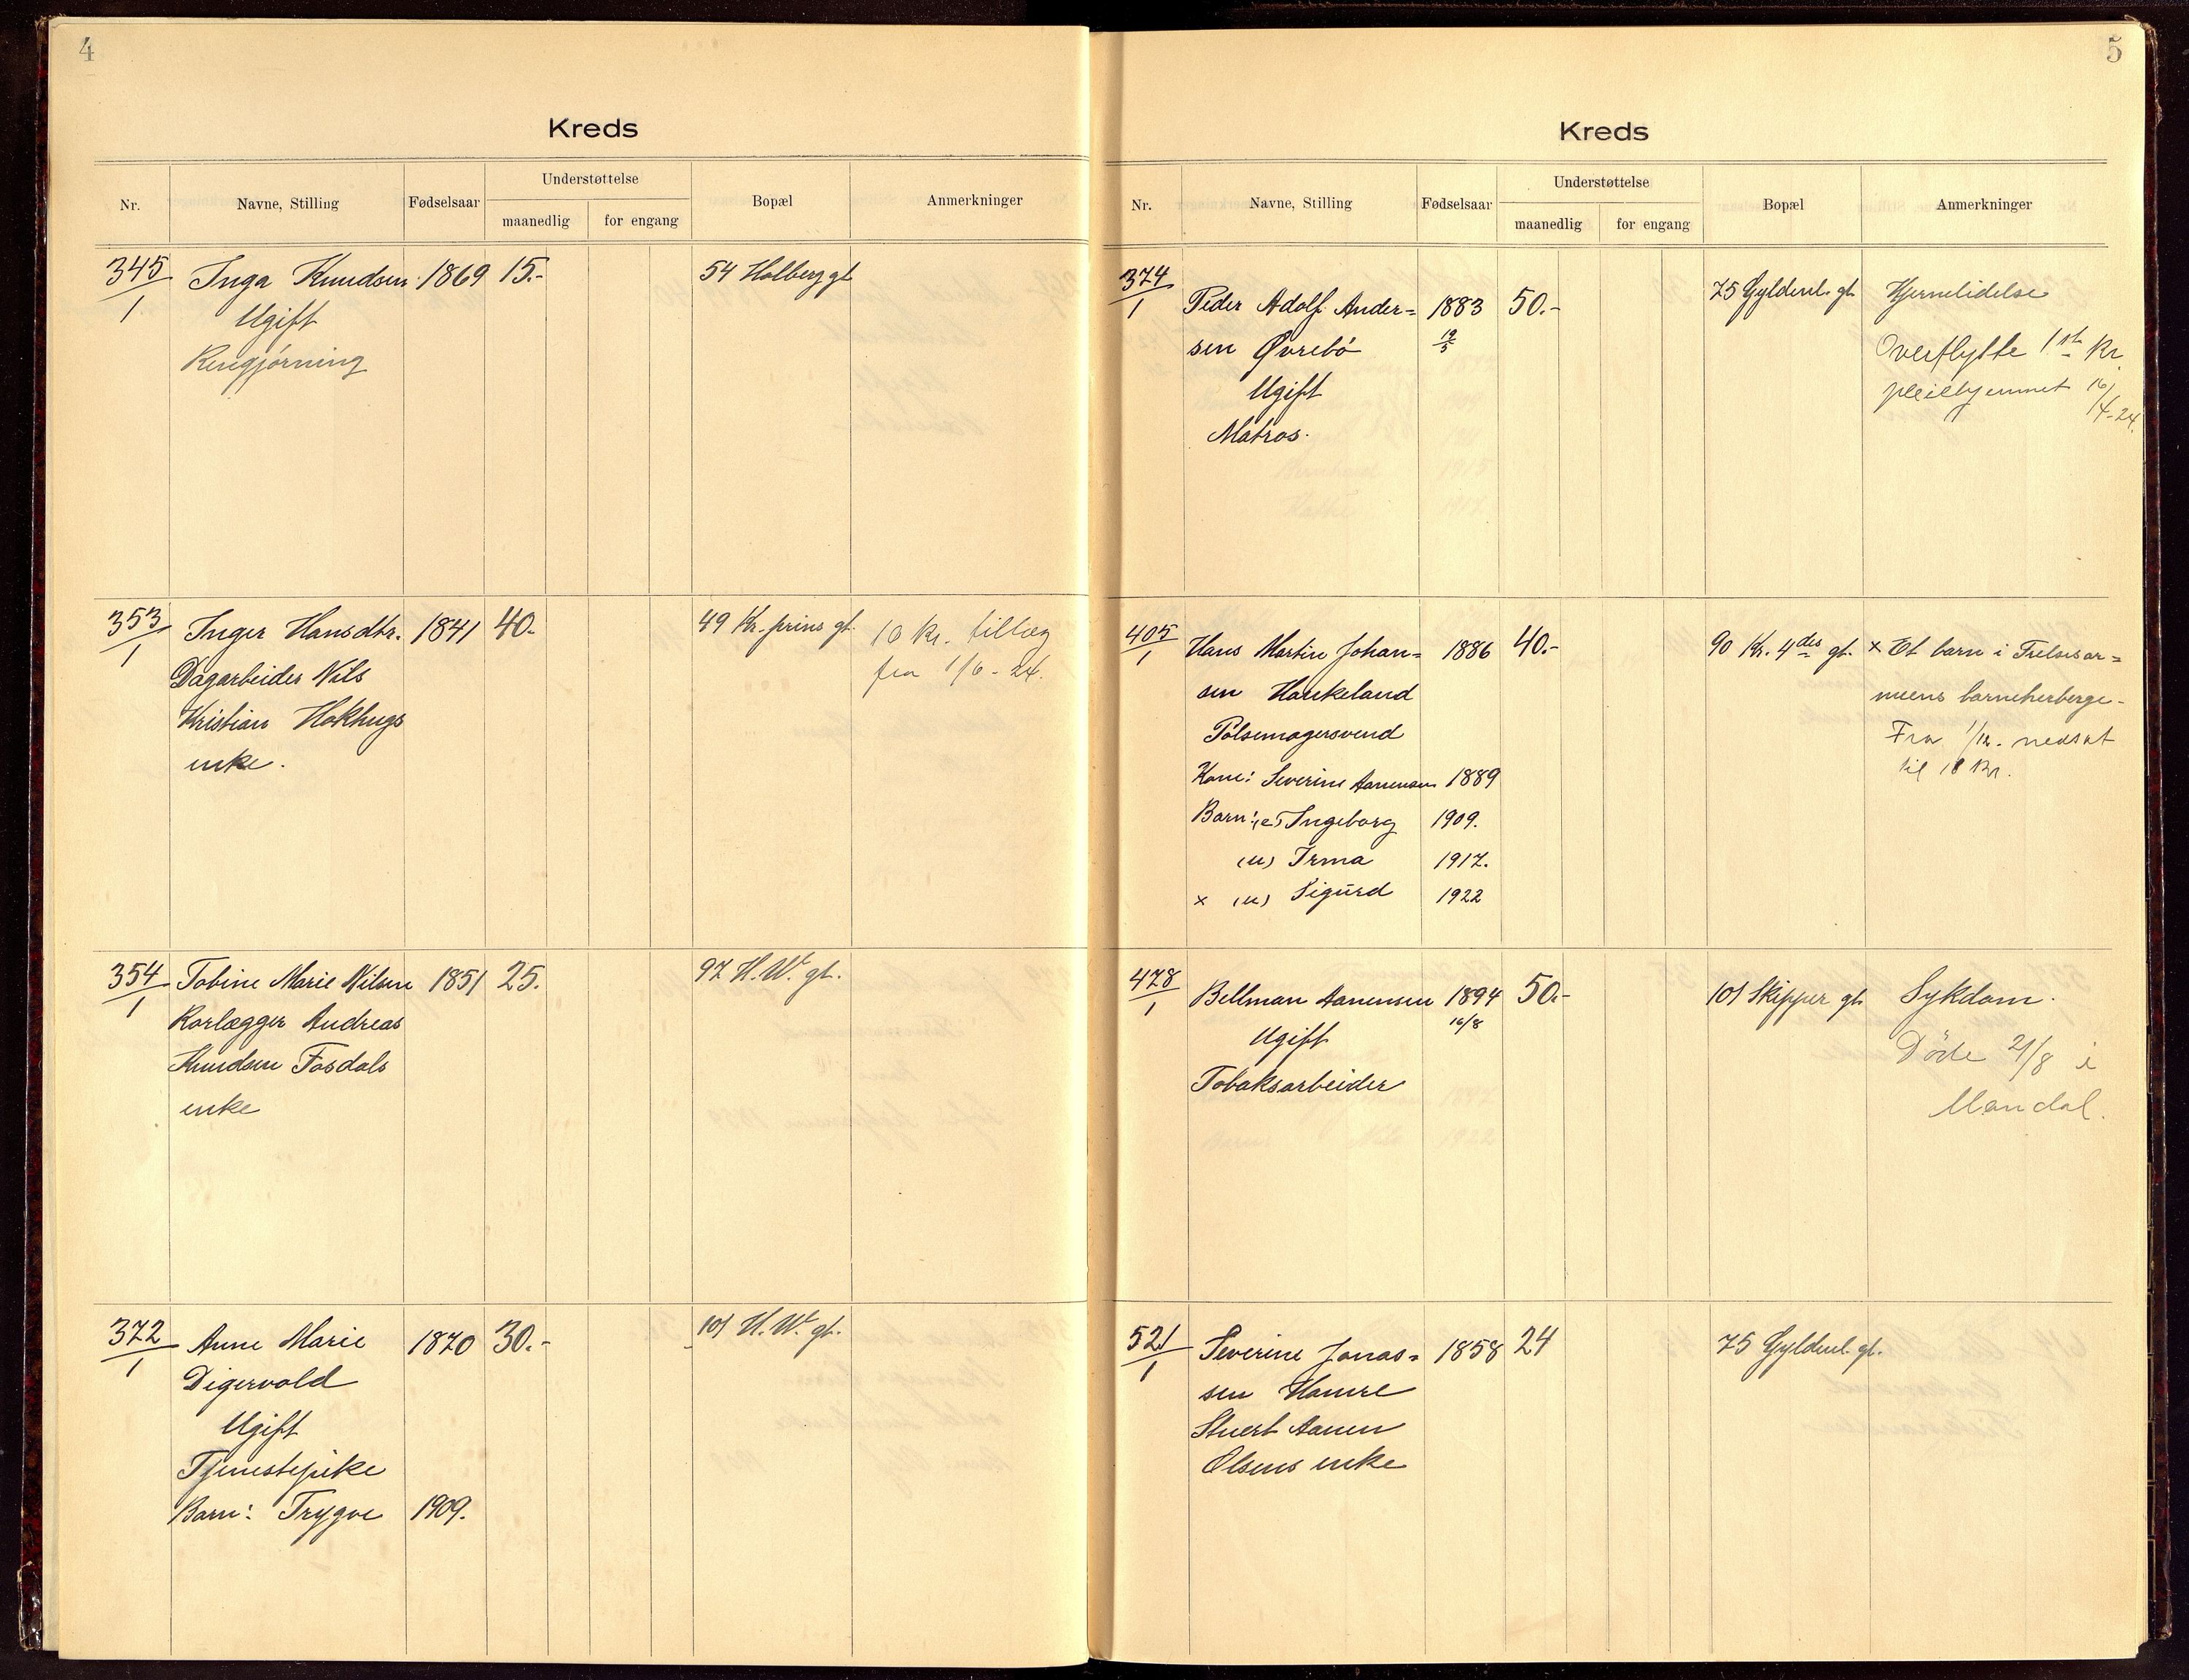 4
Kreds
Nr. Navne, Stilling Fødselsaar Understøttelse Bopæl Anmerkninger
maanedlig for engang
345/1 Inga Knudsen 1869 15.- 54 Holberg gt
Ugift
Rengjørning
353/1 Inger Hansdtr. 1841 40.- 49 Kr. prins gt. 10 Kr. tillæg
Dagarbeider Nils fra 1/6 - 24.
Kristian Hokhugs
enke.
354/1 Tobine Marie Nilsen 1851 25. 97 H.W. gt.
Rørlægger Andreas
Knudsen Fosdals
enke
372/1 Anne Marie 1870 30.- 101 H.W. gt.
Digervold
Ugift
Tjenestepike
Barn: Trygve 1909.
5
Kreds
Nr. Navne, Stilling Fødselsaar Understøttelse Bopæl Anmerkninger
maanedlig for engang
374/1 Peder Adolf Ander= 1883 50.- 75 Gyldenl. gt. Hjernelidelse
sen Øvrebö 19/5 Overflytte 1ste Kr.
Ugift pleiehjemmet 16/4-24.
Matros.
405/1 Hans Martin Johan= 1886 40.- 90 Kr. 4des gt. x Et barn i Frelsesar=
sen Haukeland meens barneherberge-
Pölsemagersvend Fra 1/12. nedsat
til 18 Kr.
Kone: Severine Aanensen 1889
Barn: (e) Ingeborg 1909.
(u) Irma 1917.
x (u) Sigurd 1922
478/1 Bellman Aanensen 1894 50.- 101 Skipper gt. Sykdom.
Ugift 16/8 Döde 21/8 i
Tobaksarbeider Mandal.
521/1 Severine Jonas= 1858 24 75 Gyldenl. gt.
sen Hamre
Stuert Aanen
Olsens enke